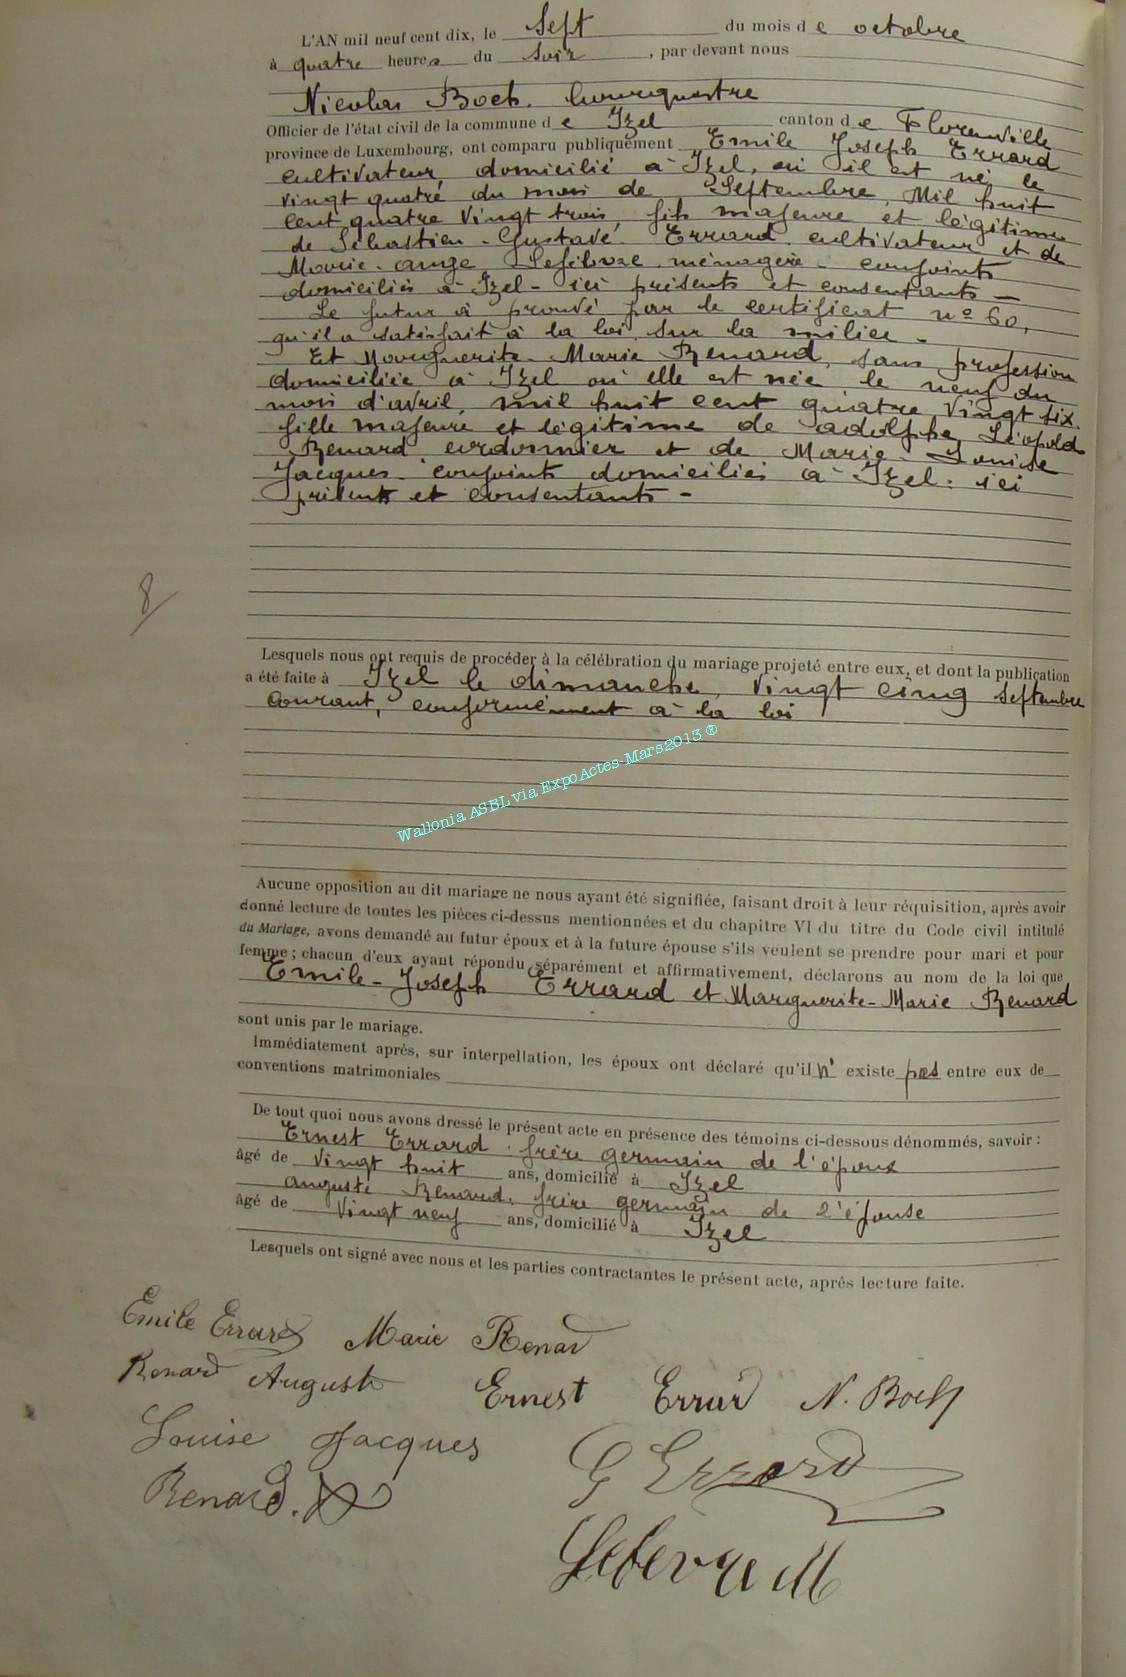 L'AN mil neuf cent dix, le Sept du mois de octobre
à quatre heures du soir, par devant nous
Nicolas Boch. bourgmestre
Officier de l'état civil de la commune de Izel canton de Florenville
province de Luxembourg, ont comparu publiquement Emile Joseph Errard
cultivateur, domicilié à Izel, où il est né le
vingt quatre du mois de Septembre, Mil huit
cent quatre Vingt trois, fils majeure et légitime
de Sébastien-Gustave Errard cultivateur et de
Marie-ange Lefebvre ménagère conjoints
domiciliés à Izel - ici présents et consentants -
Le futur à prouvé par le certificat nº 60,
qu'il a satisfait à la loi sur la milice -
Et Marguerite-Marie Renard, sans profession
domiciliée à Izel où elle est née le neuf du
mois d'avril, mil huit cent quatre Vingt six.
fille majeure et légitime de adolphe Léopold
Renard cordonnier et de Marie-Louise
Jacques conjoints domiciliés à Izel. ici
présents et consentants -
8
Lesquels nous ont requis de procéder à la célébration du mariage projeté entre eux, et dont la publication
a été faite à Izel le dimanche, Vingt cinq septembre
courant, conformément à la loi
Wallonia ASBL via ExpoActes-Mars2013 ®
Aucune opposition au dit mariage ne nous ayant été signifiée, faisant droit à leur réquisition, après avoir
donné lecture de toutes les pièces ci-dessus mentionnées et du chapitre VI du titre du Code civil intitulé
du Mariage, avons demandé au futur époux et à la future épouse s'ils veulent se prendre pour mari et pour
femme ; chacun d'eux ayant répondu séparément et affirmativement, déclarons au nom de la loi que
Emile-Joseph Errard et Marguerite-Marie Renard
sont unis par le mariage.
Immédiatement après, sur interpellation, les époux ont déclaré qu'il n' existe pas entre eux de
conventions matrimoniales
De tout quoi nous avons dressé le présent acte en présence des témoins ci-dessous dénommés, savoir :
Ernest Errard. frère germain de l'époux
âgé de vingt huit ans, domicilié à Izel
auguste Renard. frère germain de l'épouse
âgé de Vingt neuf ans, domicilié à Izel
Lesquels ont signé avec nous et les parties contractantes le présent acte, après lecture faite.
Emile Errard Marie Renard
Renard Auguste Ernest Errard N. Boch
Louise Jacques G Errard
Renard. A
Lefevre M